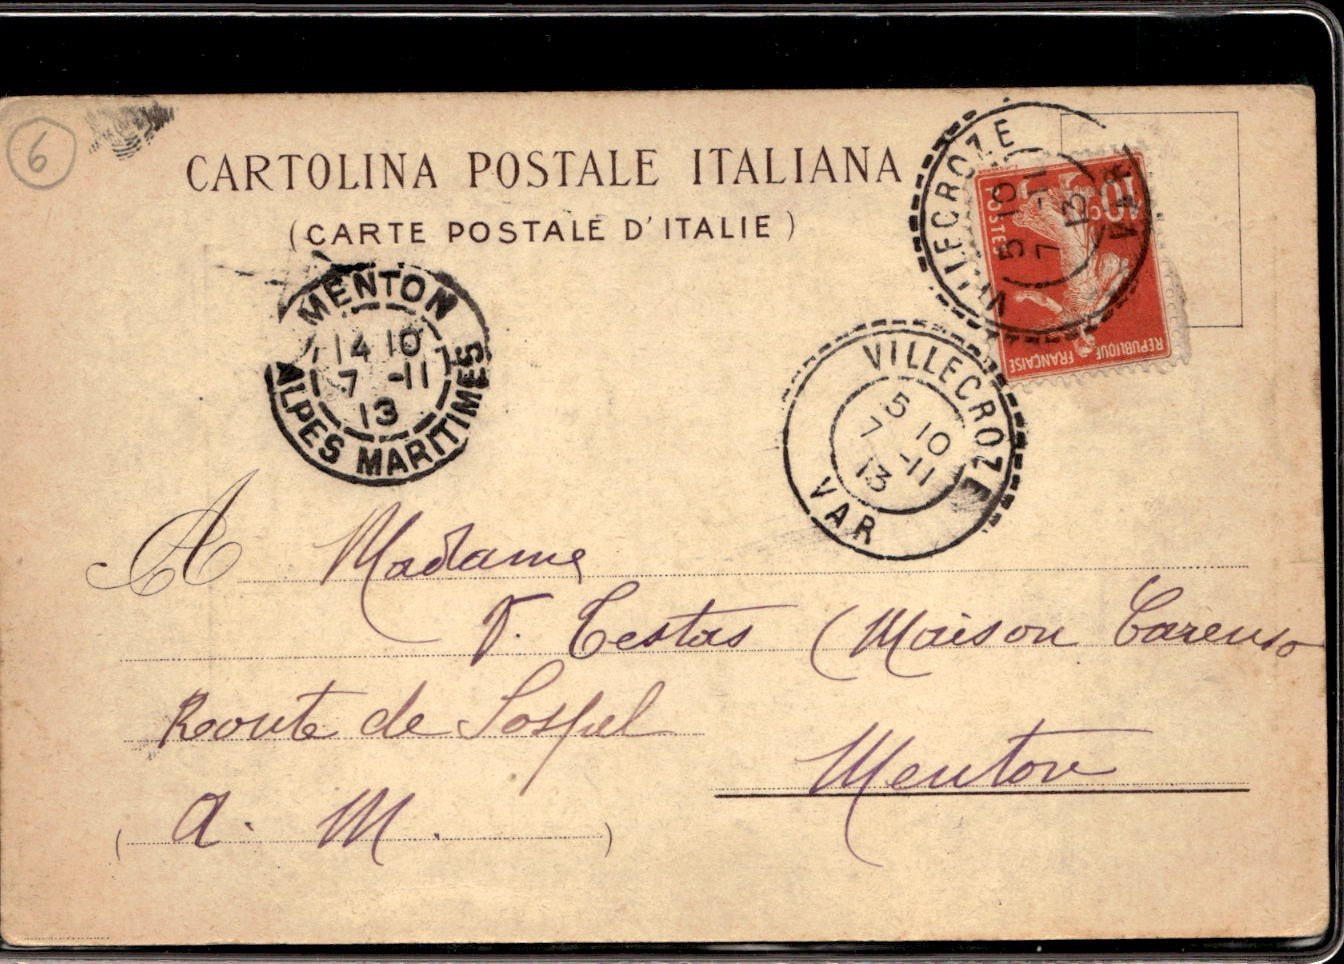 6
CARTOLINA POSTALE ITALIANA
(CARTE POSTALE D'ITALIE)
VILLECROZE
5 10
7 -11
13
VAR
10c
POSTES
REPUBLIQUE FRANÇAISE
MENTON
14 10
7 -11
13
ALPES MARITIMES
VILLECROZE
5 10
7 -11
13
VAR
A Madame
V. Testas (Maison Carenso
Route de Sospel
Menton
(A. M.)